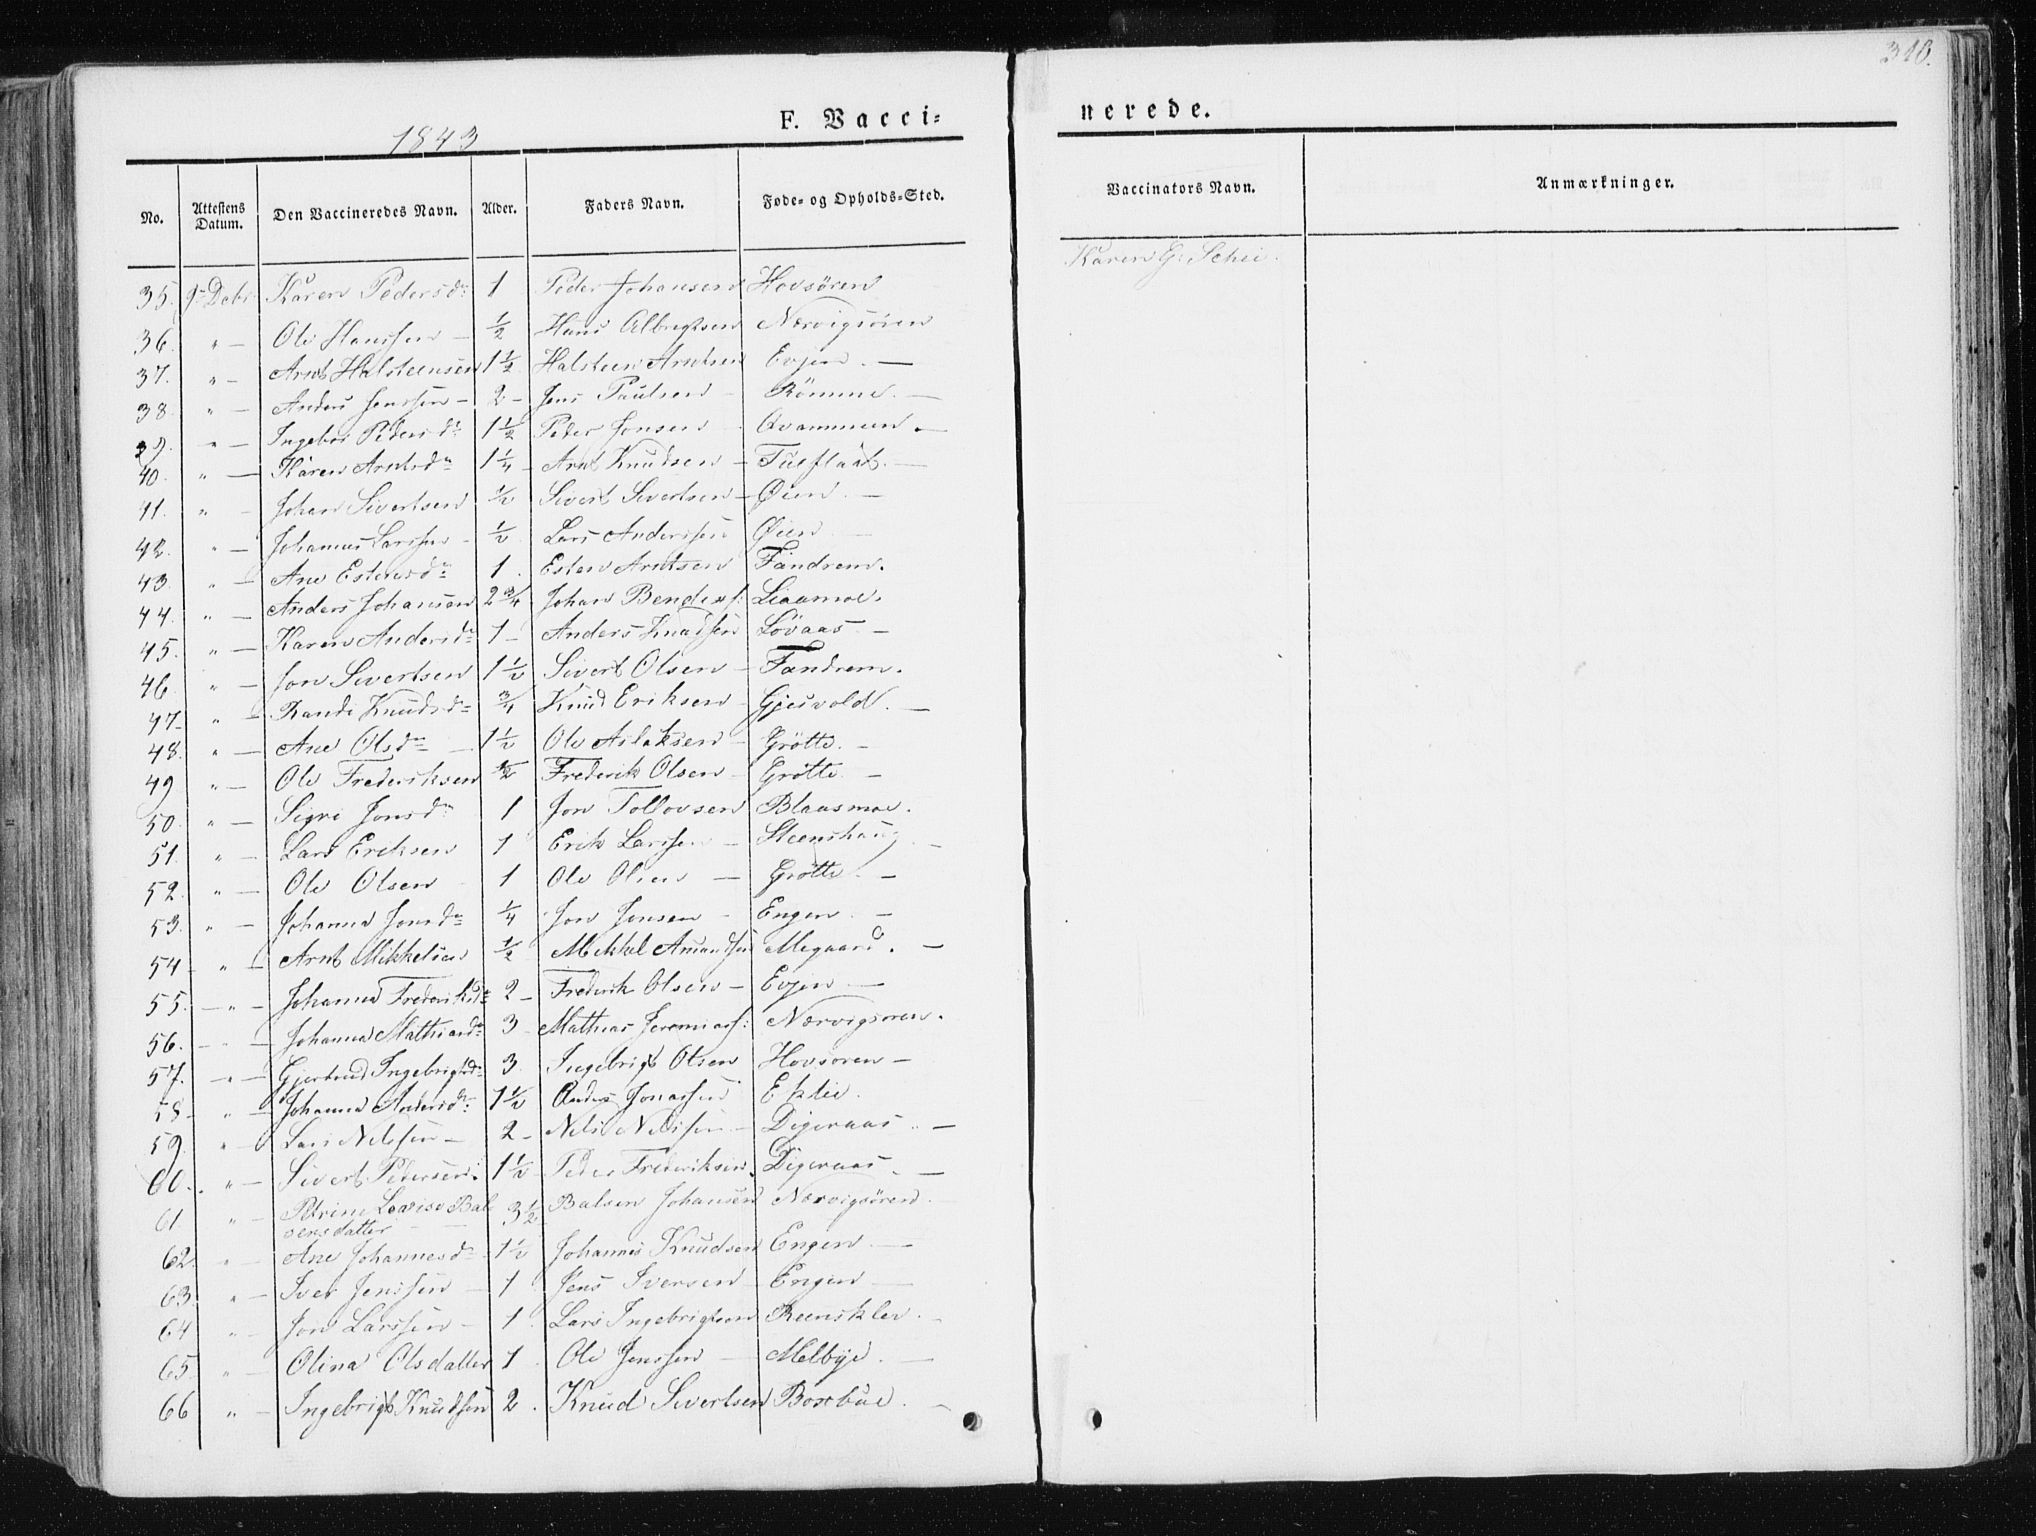 310.
1843
F. Vacci-
nerede.
No. Attestens Datum. Den Vaccineredes Navn. Alder. Faders Navn. Føde- og Opholds-Sted. Vaccinators Navn. Anmærkninger.
35. 9- Debr Karen Pedersdr 1 Peder Johansen Hovsören Karen G. Schei.
36. " — Ole Hanssen — 1/2 Hans Albregtsen Nærvigsören
37. " — Arnt Halsteensen 1 1/2 Halsteen Arntsen Evjen. —
38. " — Anders Jenssen — 2 — Jens Paulsen — Römme. —
39. " — Ingebor Pedersdr 1 1/2 Peder Jonsen — Qvammen. —
40. " — Karen Arntsdr 1 1/4 — Arnt Knudsen — —
41. " — Johan Sivertsen 1/2 Sivert Sivertsen — Øien. —
42. " — Johannes Larssen — 1/2 Lars Anderssen Øien —
43. " — Ane Estensdr 1. Esten Arntsen Fandrem.
44. " — Anders Johansen 2 3/4 Johan Bendixs: Liaamoe.
45. " — Karen Andersdr 1 — Anders Knudsen Lövaas —
46. " — Jon Sivertsen 1 1/2 Sivert Olsen — Fandrem.
47. " — Randi Knudsdr 3/4 Knud Eriksen — Gjeisvold. —
48. " — Ane Olsdr — 1 1/2 Ole Aslaksen — Grötte. —
49 " — Ole Frederiksen 1/2 Frederik Olsen — Grötte —
50. " — Sigri Jonsdr 1 Jon Tollovsen Blaasmoe.
51. " — Lars Eriksen 1 Erik Larssen — Steenshaug. —
52. " — Ole Olsen 1 Ole Olsen — Grötte. —
53. " — Johanna Jonsdr 1/4 Jon Jonsen — Engen. —
54 — " — Arnt Mikkelsen 1/2 Mikkel Amundsen Megaard. —
55. — " — Johanna Frederiksdr 2 — Frederik Olsen — Evjen —
56. — " — Johanna Mathiasdr 3 — Mathias Jeremiass: Nærvigsoren.
57. — " — Gjertrud Ingebrigtsdr 3. Ingebrigt Olsen Hovsoren —
58 — " — Johanna Andersdr: 1 1/2 Anders Jonassen Eklie.
59. " — Lars Nilssen — 2 — Nils Nilssen — Digeraas. —
60. " — Sivert Pedersen. 1 1/2 Peder Frederiksen. Digeraas. —
61. " — Petrine Lovise Bal 3 1/2 Balsen Johansen Nærvigsören. —
sensdatter —
62. " — Ane Johannesdr — 1 1/2 Johannes Knudsen Engen. —
63. " — Iver Jenssen — 1. Jens Iversen — Engen —
64 " — Jon Larssen — 1. Lars Ingebrigtsen Reensklev. —
65. " — Olina Olsdatter 1. Ole Jenssen — Melbye. —
66 " — Ingebrigt Knudsen 2. Knud Sivertsen Bosbue. —